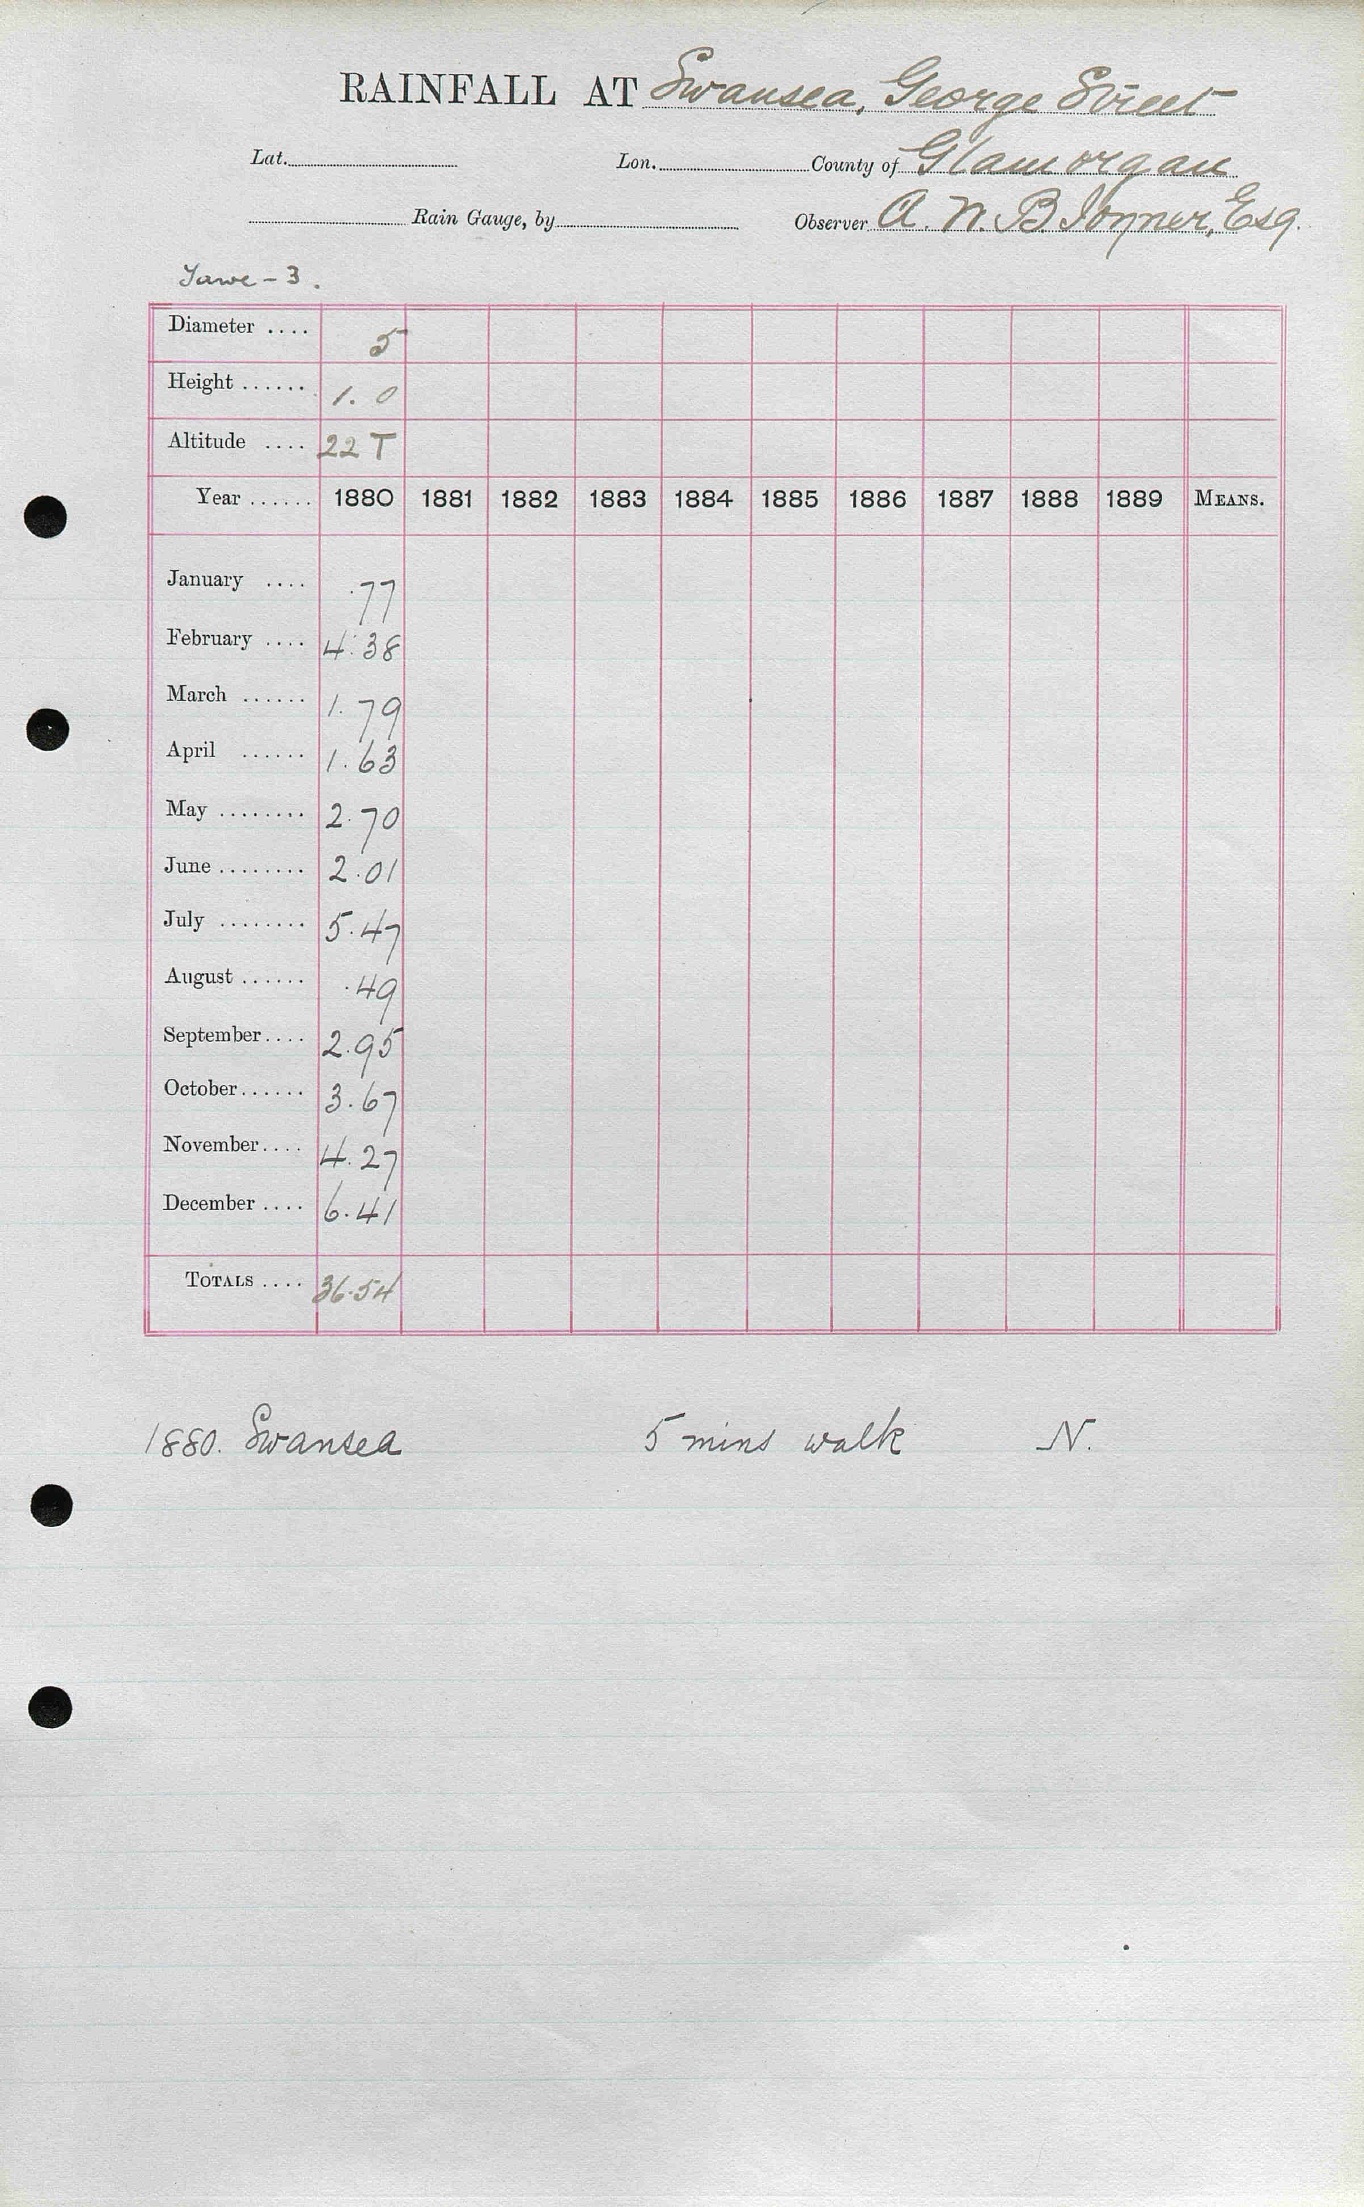 RAINFALL AT Swansea, George Street
Lat. Lon. County of Glamorgan
Rain Gauge, by Observer A. W. B. Joyner, Esq.
Tawe - 3.
Diameter .... 5
Height ...... 1. 0
Altitude .... 22 T
Year ...... 1880 1881 1882 1883 1884 1885 1886 1887 1888 1889 MEANS.
January .... .77
February .... 4.38
March ...... 1.79
April ...... 1.63
May ........ 2.70
June ........ 2.01
July ........ 5.47
August ...... .49
September.... 2.95
October...... 3.67
November.... 4.27
December .... 6.41
TOTALS .... 36.54
1880. Swansea 5 mins walk N.